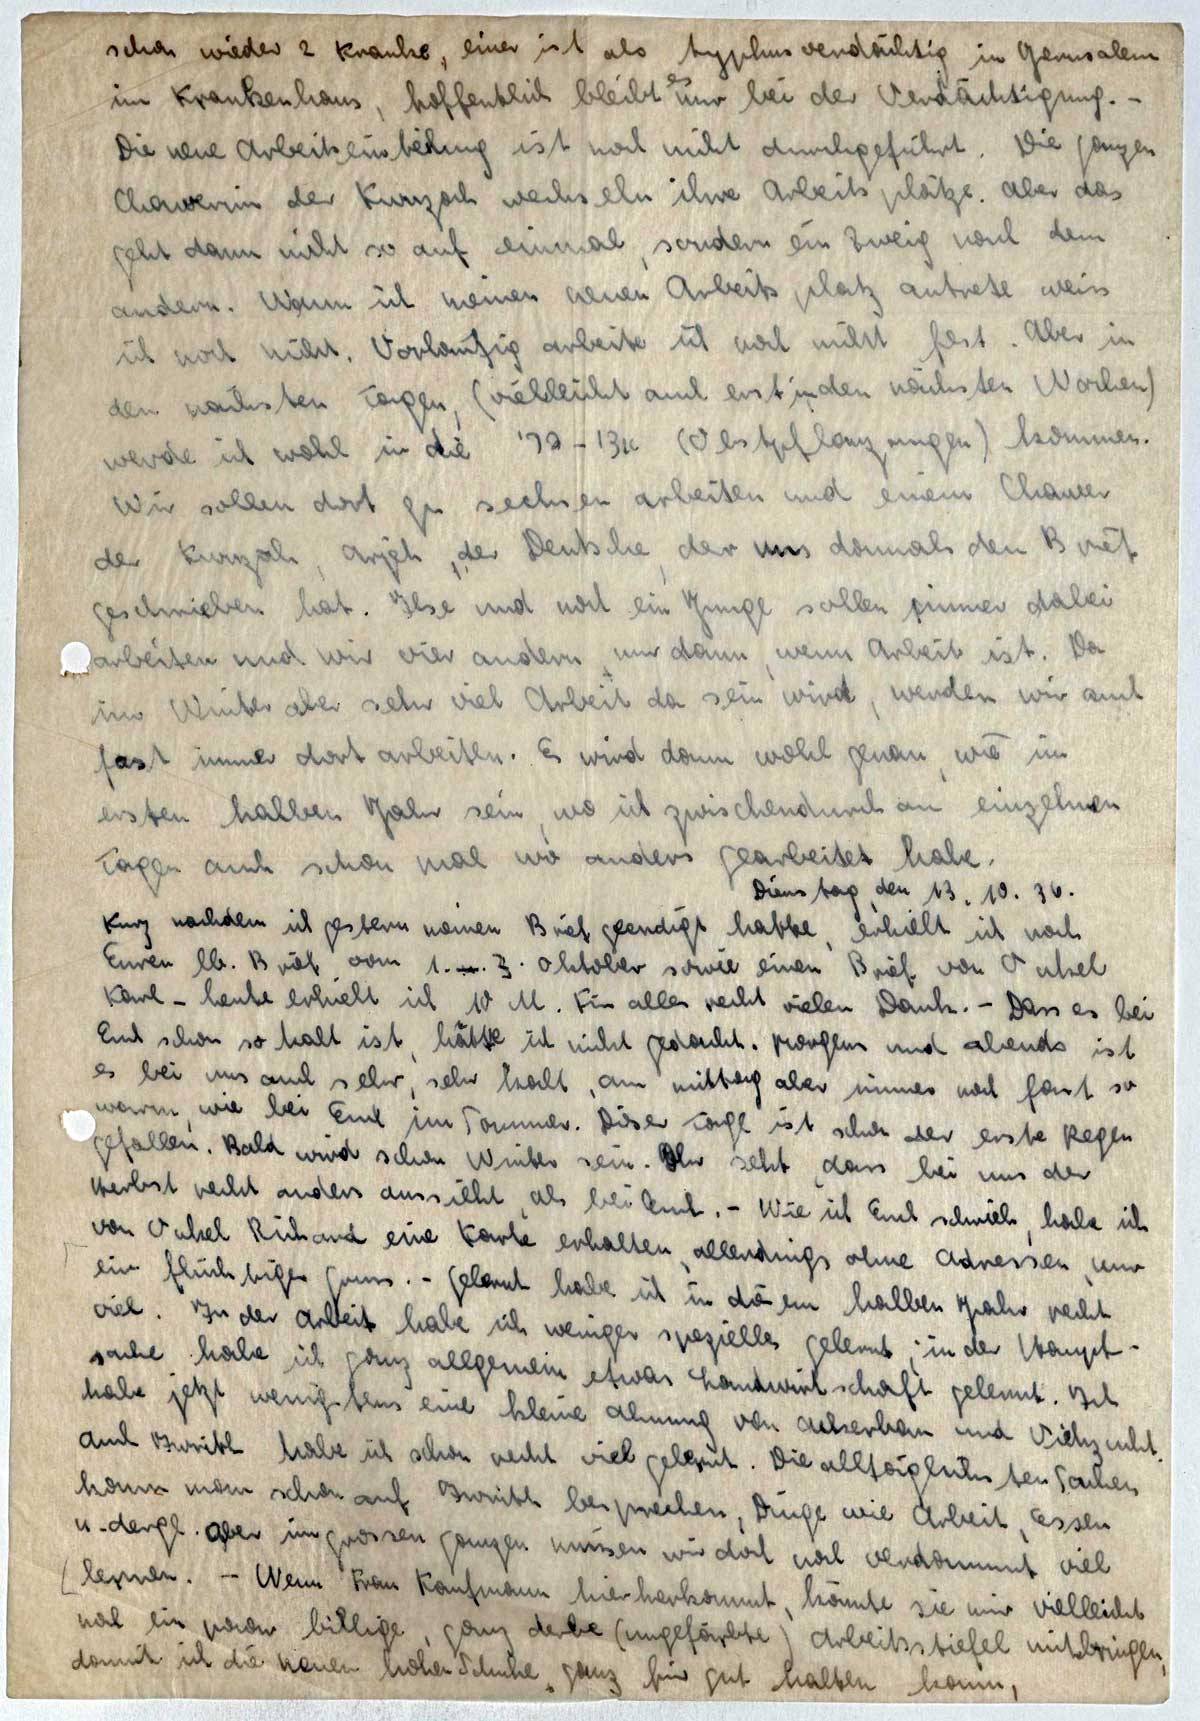 schon wieder 2 Kranke, einer ist als typhusverdächtig in Jerusalem
im Krankenhaus, hoffentlich bleibt es nur bei der Verdächtigung. -
Die neue Arbeitseinteilung ist noch nicht durchgeführt. Die ganzen
Chawerim der Kwuzah wechseln ihre Arbeitsplätze. Aber das
geht dann nicht so auf einmal, sondern ein Zweig nach dem
andern. Wann ich meinen neuen Arbeitsplatz antrete weiss
ich noch nicht. Vorläufig arbeite ich noch nicht fest. Aber in
den nächsten Tagen, (vielleicht auch erst in den nächsten Wochen)
werde ich wohl in die (Obstpflanzungen) kommen.
Wir sollen dort zu sechsen arbeiten und einem Chawer
der Kwuzah, Arjeh, der Deutsche, der uns damals den Brief
geschrieben hat. Ilse und noch ein Junge sollen immer dabei
arbeiten und wir vier andern, nur dann, wenn Arbeit ist. Da
im Winter aber sehr viel Arbeit da sein wird, werden wir auch
fast immer dort arbeiten. Es wird dann wohl genau, wie im
ersten halben Jahr sein, wo ich zwischendurch an einzelnen
Tagen auch schon mal wo anders gearbeitet habe.
Dienstag, den 13. 10. 36.
Kurz nachdem ich gestern meinen Brief geendigt hatte, erhielt ich noch
Euren lb. Brief vom 1. - 3. Oktober sowie einen Brief von Onkel
Karl - heute erhielt ich 10 M. Für alles recht vielen Dank. - Dass es bei
Euch schon so kalt ist, hätte ich nicht gedacht. Morgens und abends ist
es bei uns auch sehr, sehr kalt, am mittag aber immer noch fast so
warm, wie bei Euch im Sommer. Dieser Tage ist schon der erste Regen
gefallen. Bald wird schon Winter sein. Ihr seht, dass bei uns der
Herbst recht anders aussieht, als bei Euch. - Wie ich Euch schrieb, habe ich
von Onkel Richard eine Karte erhalten, allerdings ohne Adressen, nur
ein flüchtiger Gruss. - Gelernt habe ich in diesem halben Jahr recht
viel. In der Arbeit habe ich weniger spezielles gelernt, in der Haupt-
sache habe ich ganz allgemein etwas Landwirtschaft gelernt. Ich
habe jetzt wenigstens eine kleine Ahnung von Ackerbau und Viehzucht.
Auch Iwrith habe ich schon recht viel gelernt. Die alltäglichsten Sachen
kann man schon auf Iwrith besprechen, Dinge wie Arbeit, Essen
u. dergl. Aber im grossen ganzen müssen wir doch noch verdammt viel
lernen. - Wenn Frau Kaufmann hierherkommt, könnte sie mir vielleicht
mal ein paar billige, ganz derbe (ungefärbte) Arbeitsstiefel mitbringen,
damit ich die neuen hohen Schuhe, ganz für gut halten kann,